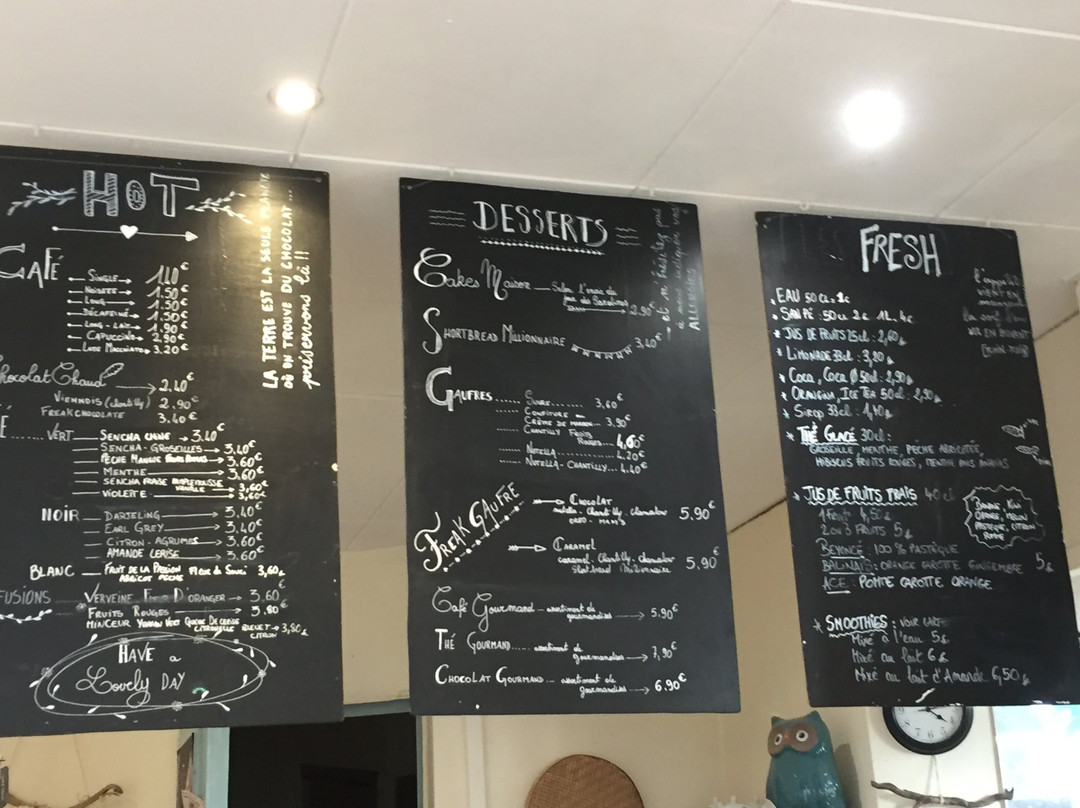 HOT
CAFÉ
SINGLE 1.10€
NOISETTE 1.50€
LONG 1.50€
DÉCAFEINÉ 1.50€
LONG - LAIT 1.90€
CAPUCCINO 2.90€
LATTE MACCHIATO 3.20€
Chocolat Chaud 2,40€
VIENNOIS (chantilly) 2,90€
FREAKCHOCOLATE 3.40€
VERT SENCHA CHINE 3.40€
SENCHA - GROSEILLES 3,40€
PÊCHE MANGUE 3.60€
MENTHE 3.60€
SENCHA FRAISE PAMPLEMOUSSE VANILLE 3,60€
VIOLETTE 3,60€
NOIR DARJELING 3.40€
EARL GREY 3.40€
CITRON - AGRUMES 3.60€
AMANDE CERISE 3.60€
BLANC FRUIT DE LA PASSION Fleur de Souci 3,60
ABRICOT PÊCHE
FUSIONS VERVEINE D'ORANGER 3.60€
FRUITS ROUGES 3.80€
MINCEUR VERT QUEUE DE CERISE
CITRONELLE CITRON 3,80
HAVE a
Lovely DAY
LA TERRE EST LA SEULE PLANÈTE
OÙ ON TROUVE DU CHOCOLAT ...
préservons là !!
DESSERTS
Cakes Maison Selon l'envie du
jour de 2.90€
SHORTBREAD MILLIONNAIRE 3,40€
GAUFRES SUCRE 3,60€
CONFITURE
CRÈME DE MARRON 3.90€
CHANTILLY FRUITS
ROUGES 4,60€
NUTELLA 4.20€
NUTELLA - CHANTILLY 4.40€
FREAK GAUFRE
CHOCOLAT
nutella - chantilly - chamallow
OREO - M&M'S 5.90€
CARAMEL
caramel - chantilly - chamallow
Shortbread Millionnaire 5.90€
Café Gourmand assortiment de
gourmandises 5.90€
THÉ GOURMAND assortiment de
gourmandises 7,90€
CHOCOLAT GOURMAND assortiment de
gourmandises 6.90€
et n'hésitez pas
à nous indiquer vos
ALLERGIES
FRESH
EAU 50 CL : 2€
SAN PÉ : 50 CL 2€ 1L . 4€
JUS DE FRUITS 25cl : 2,60
LIMONADE 33cl : 3,80
COCA, COCA Ø 50cl : 2,90
ORANGINA, ICE TEA 50cl : 2,90
SIROP 33cl : 1,40
THÉ GLACÉ 30cl :
GROSEILLE, MENTHE, PÊCHE ABRICOTÉE,
HIBISCUS FRUITS ROUGES, MENTHE ANIS ANANAS
JUS DE FRUITS FRAIS 40 cl
1 FRUIT 4,50
2 OU 3 FRUITS 5
BEYONCÉ 100 % PASTÈQUE
BALINAIS : ORANGE CAROTTE GINGEMBRE 5
ACE : POMME CAROTTE ORANGE
BANANE, KIWI
ORANGE, MELON
PASTÈQUE, CITRON
POMME
SMOOTHIES : VOIR CARTE
Mixé à l'eau 5
Mixé au lait 6
Mixé au lait d'Amande 6,50